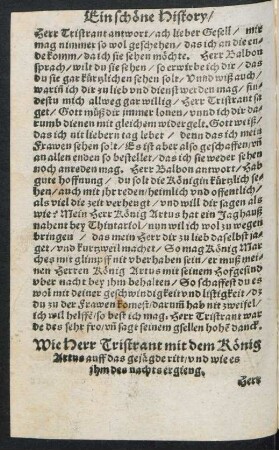 Ein schöne History/
Herr Tristrant antwort/ ach lieber Gesell/ mir
mag nimmer so wol geschehen/ das ich an die en-
de komm/ da ich sie sehen möchte. Herr Balbon
sprach/ wilt du sie sehen/ so erwirbe ich dir/ das
du sie gar kürtzlichen sehen solt/ Vnnd wiß auch/
warin̄ ich dir zu lieb vnd dienst werden mag/ fin-
destu mich allweg gar willig/ Herr Tristrant sa
get/ Gott müß dir immer lonen/ vnd ich dir da-
rumb dienen mit gleichem widergelt. Gott weiß/
das ich nit liebern tag lebet/ denn das ich mein
Frawen sehen solt/ Es ist aber also geschaffen/ vn̄
an allen enden so bestellet/ das ich sie weder sehen
noch anreden mag. Herr Balbon antwort/ Hab
gute hoffnung/ du solt die Königin kürtzlich se-
hen/ auch mit ir redlichen hören vnd öffenlich/
als viel die zeit verheugt/ vnd will dir sagen als
wie? Mein Herr König Artus hat ein Jaghauß
nahent bey Thintariol/ nun wil ich wol zu wegen
bringen/ das mein Herr dir zu lieb daselbst ja-
get/ vnd kurtzweil machet/ So mag König Mar
ches mit glimpff nit vberhaben sein/ er muß mei-
nen Herren König Artus mit seinem Hofgesind
vber nacht bey ihm behalten/ So schaffest du es
wol mit deiner geschwindigkeit vnd listigkeit/ dz
du zu der Frawen komest/ darum̄ hab nit zweifel/
ich wil helffē/ so best ich mag. Herr Tristrant war
de des sehr fro/ vn̄ sagt seinem gsellen hohē danck.
Wie Herr Tristrant mit dem König
Artus auff das gejägde ritt/ vnd wie es
ihm des nachts ergieng.
Herr